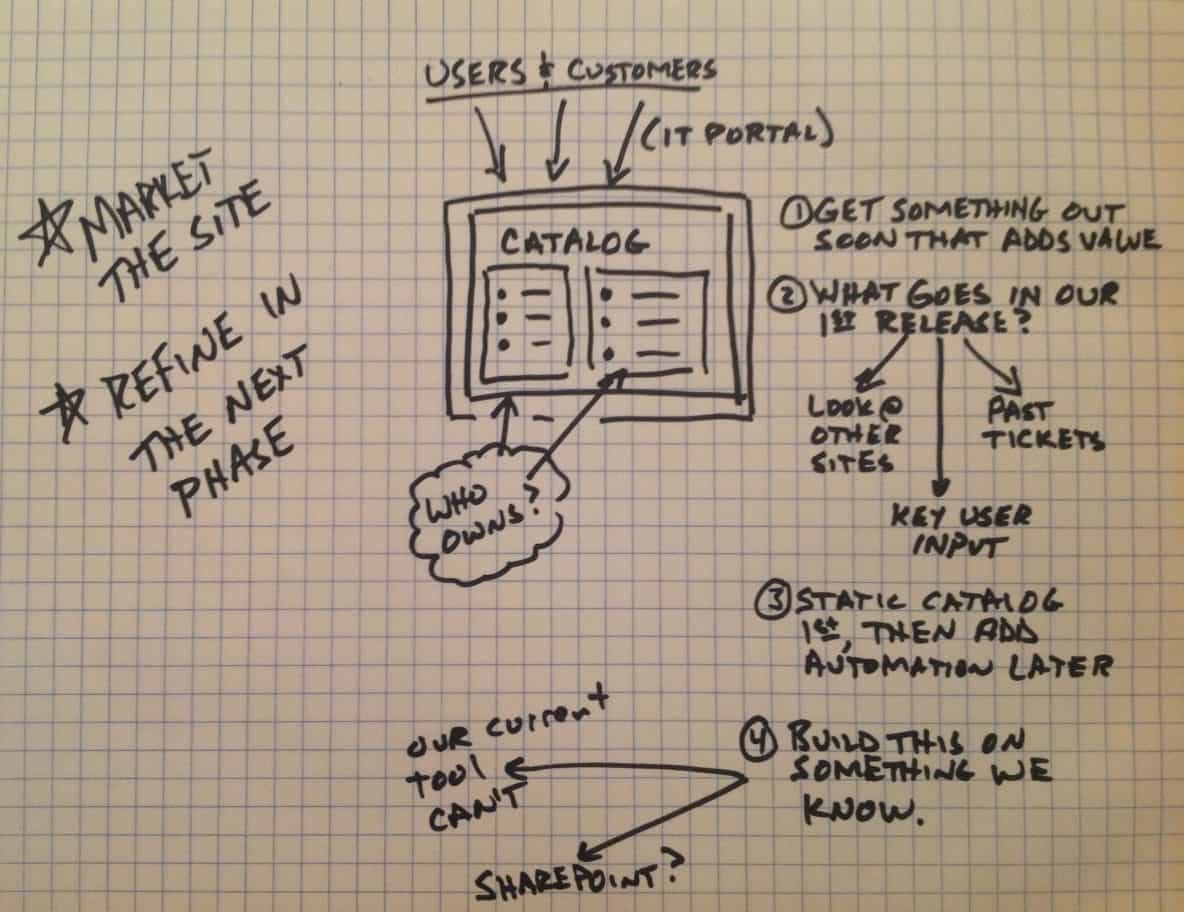 USERS & CUSTOMERS
(IT PORTAL)
★ MARKET
THE SITE
★ REFINE IN
THE NEXT
PHASE
CATALOG
WHO
OWNS?
① GET SOMETHING OUT
SOON THAT ADDS VALUE
② WHAT GOES IN OUR
1ST RELEASE?
LOOK @
OTHER
SITES
PAST
TICKETS
KEY USER
INPUT
③ STATIC CATALOG
1st, THEN ADD
AUTOMATION LATER
④ BUILD THIS ON
SOMETHING WE
KNOW.
OUR CURRENT
TOOL
CAN'T
SHAREPOINT?